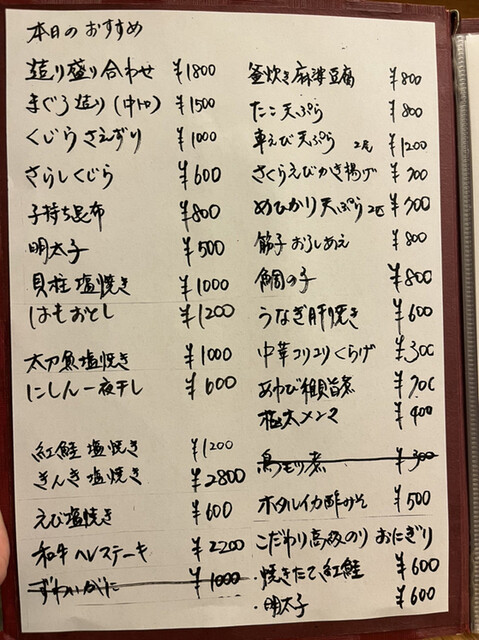 本日のおすすめ
造り盛り合わせ ¥1800
まぐろ造り(中トロ) ¥1500
くじらさえずり ¥1000
さらしくじら ¥600
子持ち昆布 ¥800
明太子 ¥500
貝柱塩焼き ¥1000
はもおとし ¥1200
太刀魚塩焼き ¥1000
にしん一夜干し ¥600
紅鮭塩焼き ¥1200
きんき塩焼き ¥2800
えび塩焼き ¥600
和牛ヘレステーキ ¥2200
ずわいがに ¥1000
釜炊き麻婆豆腐 ¥800
たこ天ぷら ¥800
車えび天ぷら 2尾 ¥1200
さくらえびかき揚げ ¥700
めひかり天ぷら 2匹 ¥700
筋子おろしあえ ¥800
鯛の子 ¥800
うなぎ肝焼き ¥600
中華コリコリくらげ ¥300
あわび稚貝旨煮 ¥700
極太メンマ ¥400
鳥モツ煮 ¥300
ホタルイカ酢みそ ¥500
こだわり高級のりおにぎり
・焼きたて紅鮭 ¥600
・明太子 ¥600